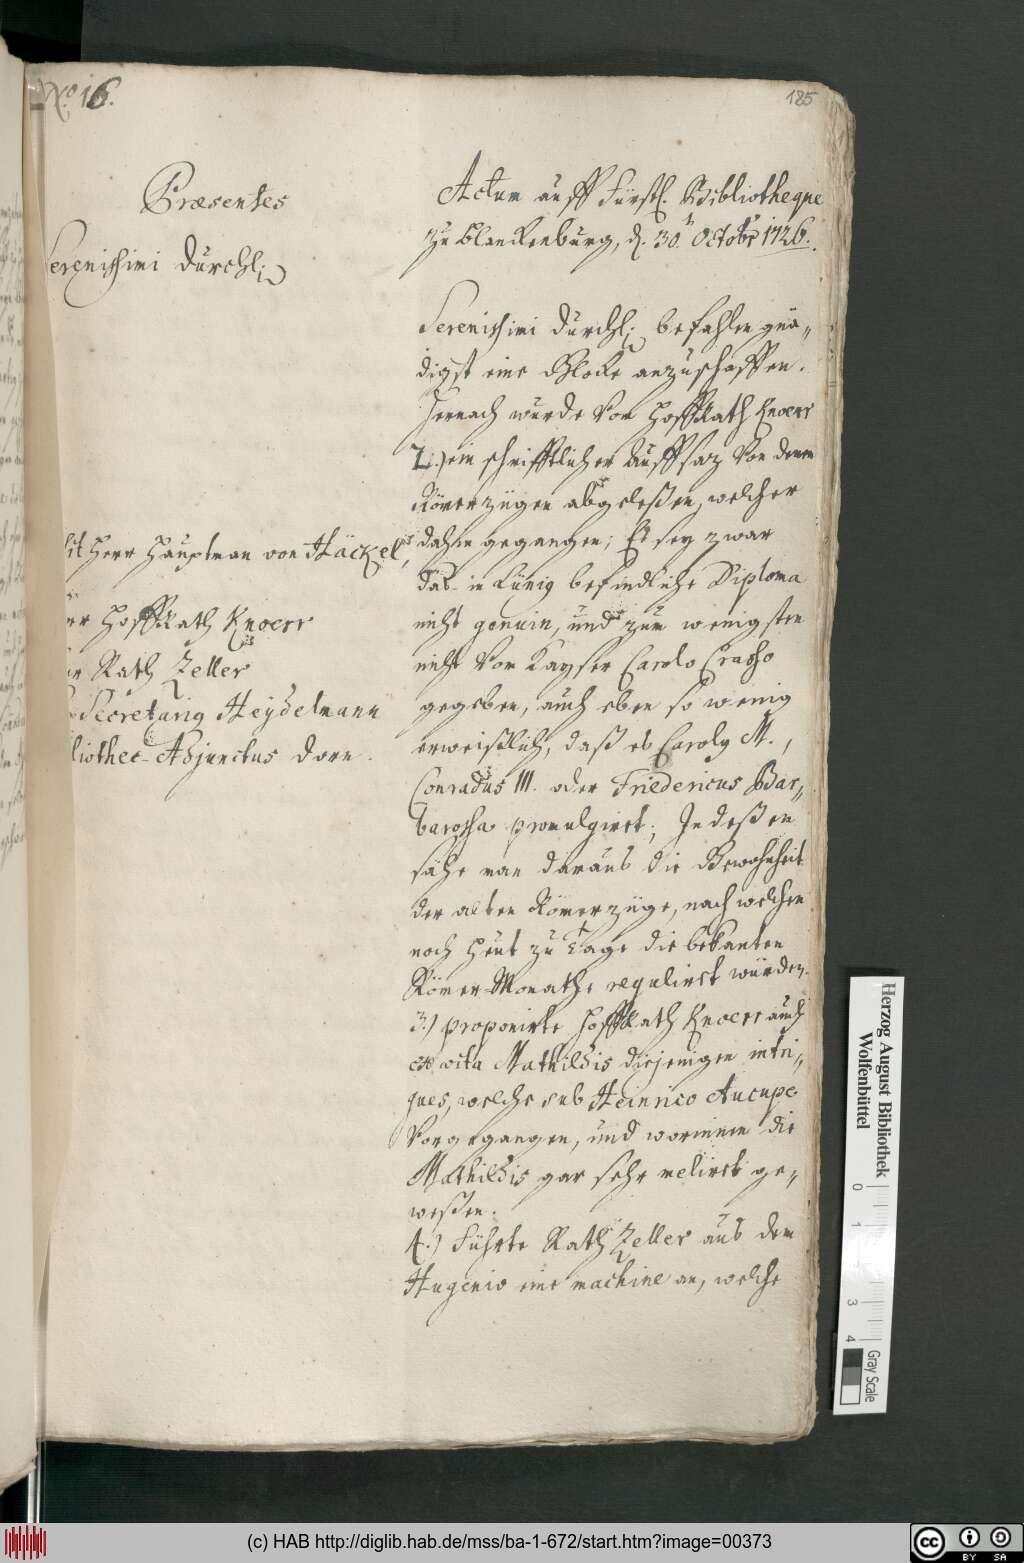 No. 16.
185
Præsentes
Serenissimi Durchl.
Tit Herr Hauptman von Häckel,
Herr Hoff Rath Knoerr
Herr Rath Zeller
Secretarius Heydelmann
Bibliothec-Adjunctus Dorn.
Actum auff Fürstl. Bibliotheque
zu Blanckenburg, d. 30. Octobr 1726.
Serenissimi Durchl. befahlen gnä-
digst eine Glocke anzuschaffen.
Hernach wurde von Hoff Rath Knoerr
2.) ein schrifftlicher Auffsaz von denen
Römerzügen abgeleßen, welcher
dahin gegangen; Es sey zwar
das in Lünig befindliche Diploma
nicht genuin, und zum wenigsten
nicht von Kayser Carolo Crasso
gegeben, auch eben so wenig
erweißlich, daß es Carolus M.,
Conradus III. oder Friedericus Bar-
barossa promulgirt; Indeßen
sähe man daraus die Gewohnheit
der alten Römerzüge, nach welchen
noch heut zu Tage die bekanten
Römer-Monathe regulirt würden.
3.) proponirte Hoff Rath Knoerr auch
ex vita Mathildis diejenigen intri-
gues, welche sub Heinrico Aucupe
vorgegangen, und worinnen die
Mathildis gar sehr melirt ge-
weßen.
4.) Führte Rath Zeller aus dem
Hugenio eine machine an, welche
Herzog August Bibliothek
Wolfenbüttel
0
1
3
4
Gray Scale
(c) HAB http://diglib.hab.de/mss/ba-1-672/start.htm?image=00373
cc
BY SA